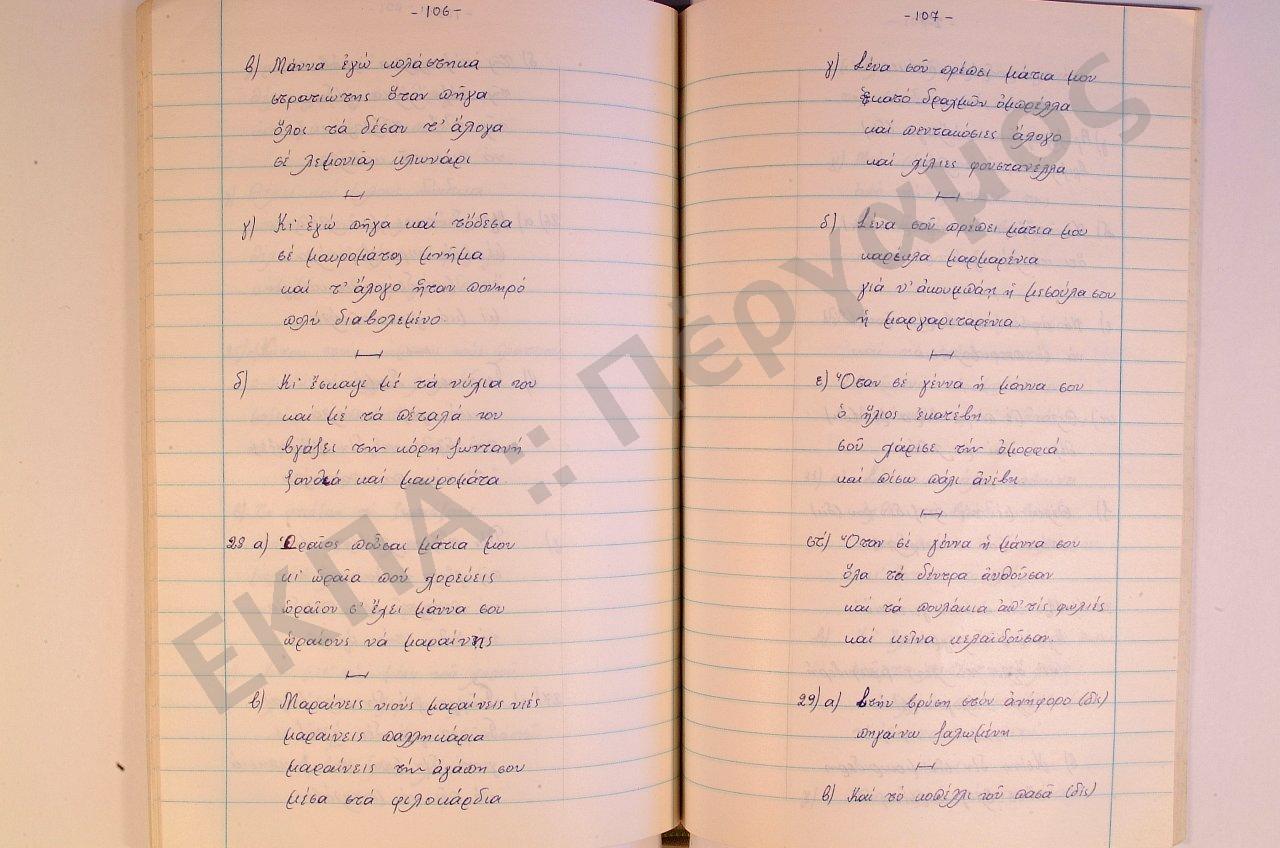 -106-
β) Μάννα ἐγώ κολάστηκα
στρατιώτης ὅταν πῆγα
ὅλοι τά δέσαν τ' ἄλογα
σέ λεμονιᾶς κλωνάρι
γ) Κι' ἐγώ πῆγα καί τὄδεσα
σέ μαυρομάτας μνῆμα
καί τ' ἄλογο ἦταν πονηρό
πολύ διαβολεμένο
δ) Κι' ἔσκαψε μέ τά νύχια του
καί μέ τά πέταλά του
βγάζει τήν κόρη ζωντανή
ξανθιά καί μαυρομάτα
28 α) Ὡραῖος ποὖσαι μάτια μου
κι' ὡραῖα πού χορεύεις
ὡραῖον σ' ἔχει μάννα σου
ὡραίους νά μαραίνῃς
β) Μαραίνεις νιούς μαραίνεις νιές
μαραίνεις παλληκάρια
μαραίνεις τήν ἀγάπη σου
μέσα στά φιλοκάρδια
-107-
γ) Σένα σοῦ πρέπει μάτια μου
ἑκατό δραχμῶν ὀμπρέλλα
καί πεντακόσιες ἄλογο
καί χίλιες φουστανέλλα
δ) Σένα σοῦ πρέπει μάτια μου
καρέκλα μαρμαρένια
γιά ν' ἀκουμπάῃ ἡ μεσούλα σου
ἡ μαργαριταρένια
ε) Ὅταν σέ γέννα ἡ μάννα σου
ὁ ἥλιος ἐκατέβη
σοῦ χάρισε τήν ὀμορφιά
καί πίσω πάλι ἀνέβη
στ) Ὅταν σέ γέννα ἡ μάννα σου
ὅλα τά δέντρα ἀνθοῦσαν
καί τά πουλάκια ἀπ' τίς φωλιές
καί κεῖνα κελαϊδοῦσαν.
29) α) Στήν βρύση στόν ἀνήφορο (δίς)
πηγαίνω ζαλωμένη
β) Καί τό κοπέλλι τοῦ πασᾶ (δίς)
ΕΚΠΑ :: Πέργαμος